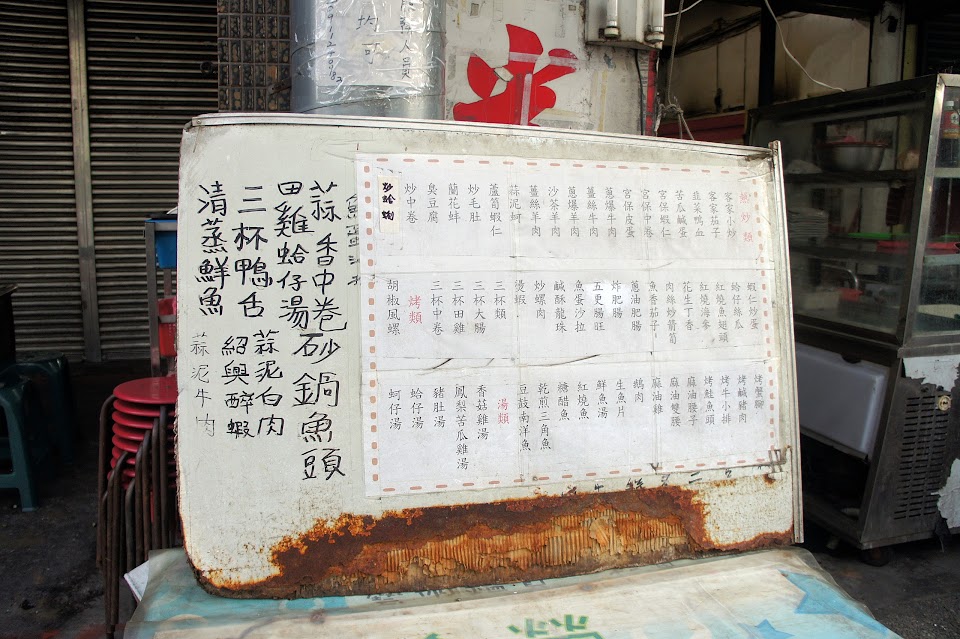 均可
人員
熱炒類
客家小炒
客家茄子
韮菜鴨血
苦瓜鹹蛋
宮保蝦仁
宮保中卷
宮保皮蛋
蔥爆牛肉
薑絲牛肉
蔥爆羊肉
沙茶羊肉
薑絲羊肉
蒜泥蚵
蘆筍蝦仁
炒毛肚
蘭花蚌
臭豆腐
炒中卷
炒蛤蜊
蝦仁炒蛋
蛤仔絲瓜
紅燒魚翅頭
紅燒海參
花生丁香
肉絲炒箭筍
魚香茄子
蔥油肥腸
炸肥腸
五更腸旺
魚蛋沙拉
鹹酥龍珠
炒螺肉
燙蝦
三杯類
三杯大腸
三杯田雞
三杯中卷
烤類
胡椒風螺
烤蟹腳
烤鹹豬肉
烤牛小排
烤鮭魚頭
麻油腰子
麻油雙腰
麻油雞
鵝肉
生魚片
鮮魚湯
紅燒魚
糖醋魚
乾煎三角魚
豆豉南洋魚
湯類
香菇雞湯
鳳梨苦瓜雞湯
豬肚湯
蛤仔湯
蚵仔湯
蒜香中卷砂鍋魚頭
田雞蛤仔湯 蒜泥白肉
三杯鴨舌 紹興醉蝦
清蒸鮮魚 蒜泥牛肉